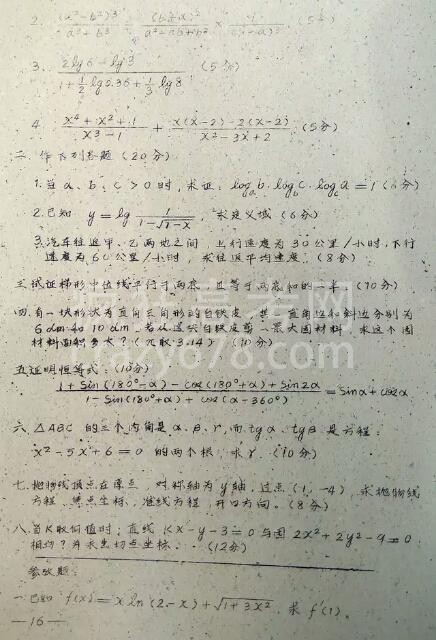 2. (a²-b²)³ / a³+b³ ÷ (b-a)² / a²-ab+b² × 1 / (5分)
3. 2lg6-lg3 / 1+½lg0.36+⅓lg8 (5分)
4. x⁴+x²+1 / x³-1 + x(x-2)-2(x-2) / x²-3x+2 (5分)
二. 作下列各题(20分)
1. 当a、b、c>0时,求证:logₐb·log_b c·log_c a=1(6分)
2. 已知 y=lg 1/1-√1-x,求定义域(6分)
3. 汽车往返甲、乙两地之间 上行速度为30公里/小时,下行
速度为60公里/小时,求往返平均速度.(8分)
三. 试证梯形中位线平行于两底且等于两底和的一半.(10分)
四. 有一块形状为直角三角形的白铁皮,其一直角边和斜边分别为
6dm和10dm 若从这块白铁皮剪一最大圆材料,求这个圆
材料面积多大?(π取3.14)(10分)
五. 证明恒等式:(10分)
1+Sin(180°-α)-cos(180°+α)+Sin2α / 1-Sin(180°+α)+cos(α-360°) =Sinα+cosα
六. △ABC的三个内角是α、β、γ,而tgα、tgβ是方程:
x²-5x+6=0 的两个根,求γ.(10分)
七. 抛物线顶点在原点,对称轴为y轴,过点(1,-4),求抛物线
方程、焦点坐标、准线方程,开口方向。(8分)
八. 当K取何值时;直线Kx-y-3=0与圆2x²+2y²-9=0
相切?并求出切点坐标.(12分)
参考题:
一. 已知 f(x)=xln(2-x)+√1+3x², 求f'(1).
—16—
mazy078.com